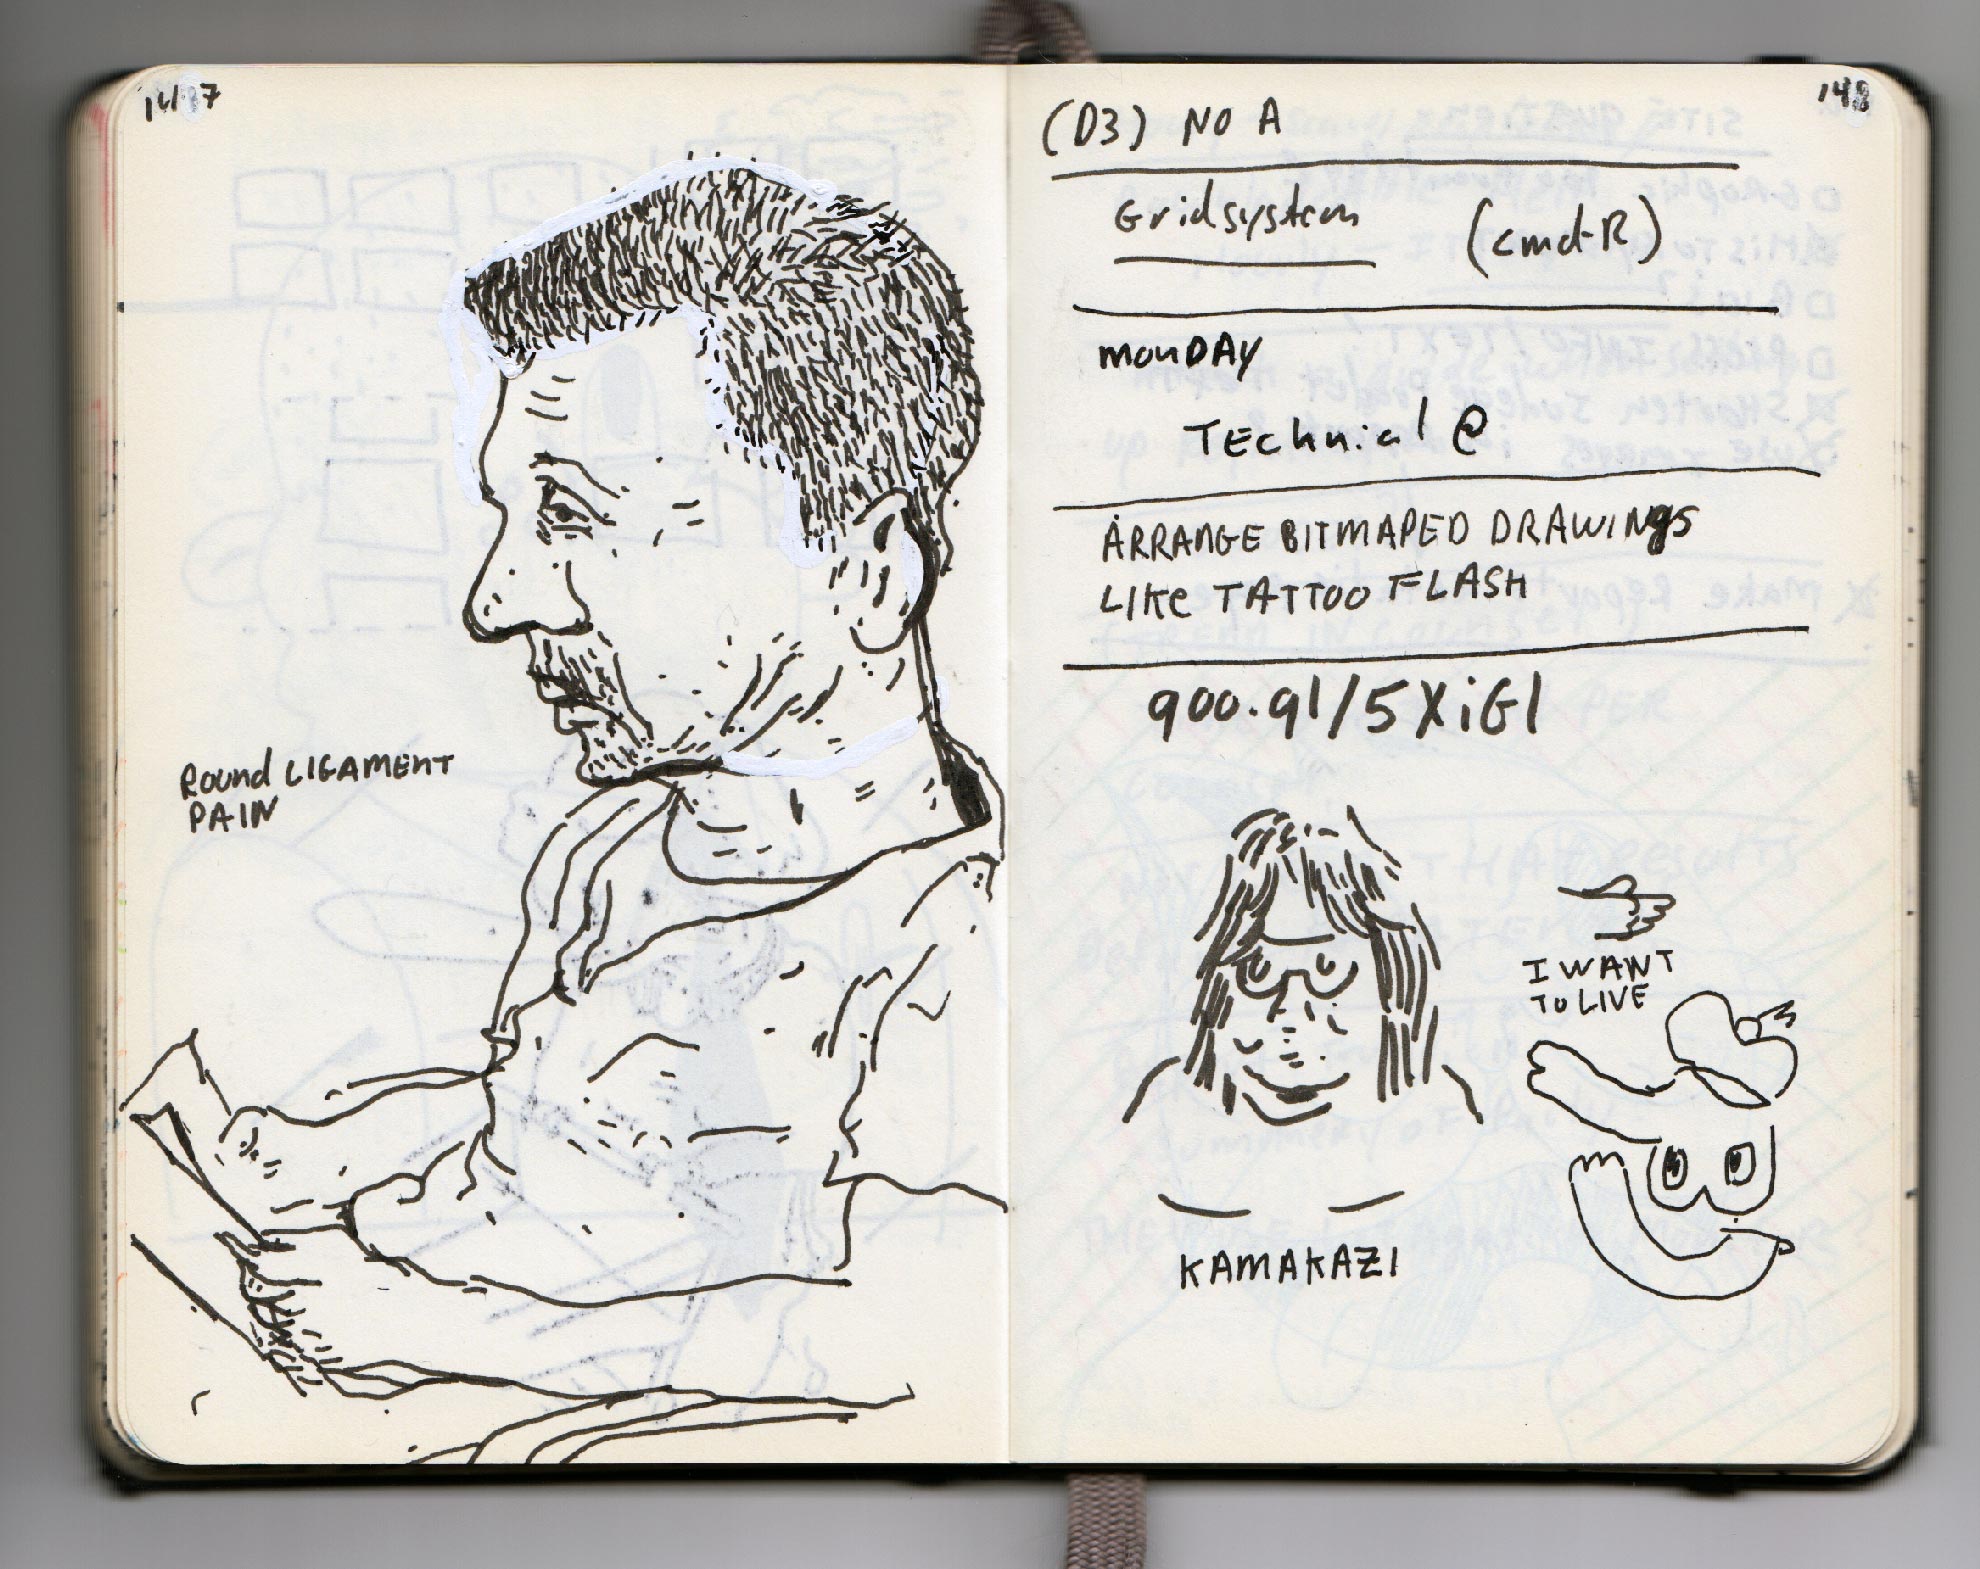 147
ROUND LIGAMENT
PAIN
148
(D3) NO A
Gridsystem (cmd-R)
MONDAY
TEchnial @
ARRANGE BITMAPED DRAWINGS
LIKE TATTOO FLASH
goo.gl/5XiG1
I WANT
TO LIVE
KAMAKAZI